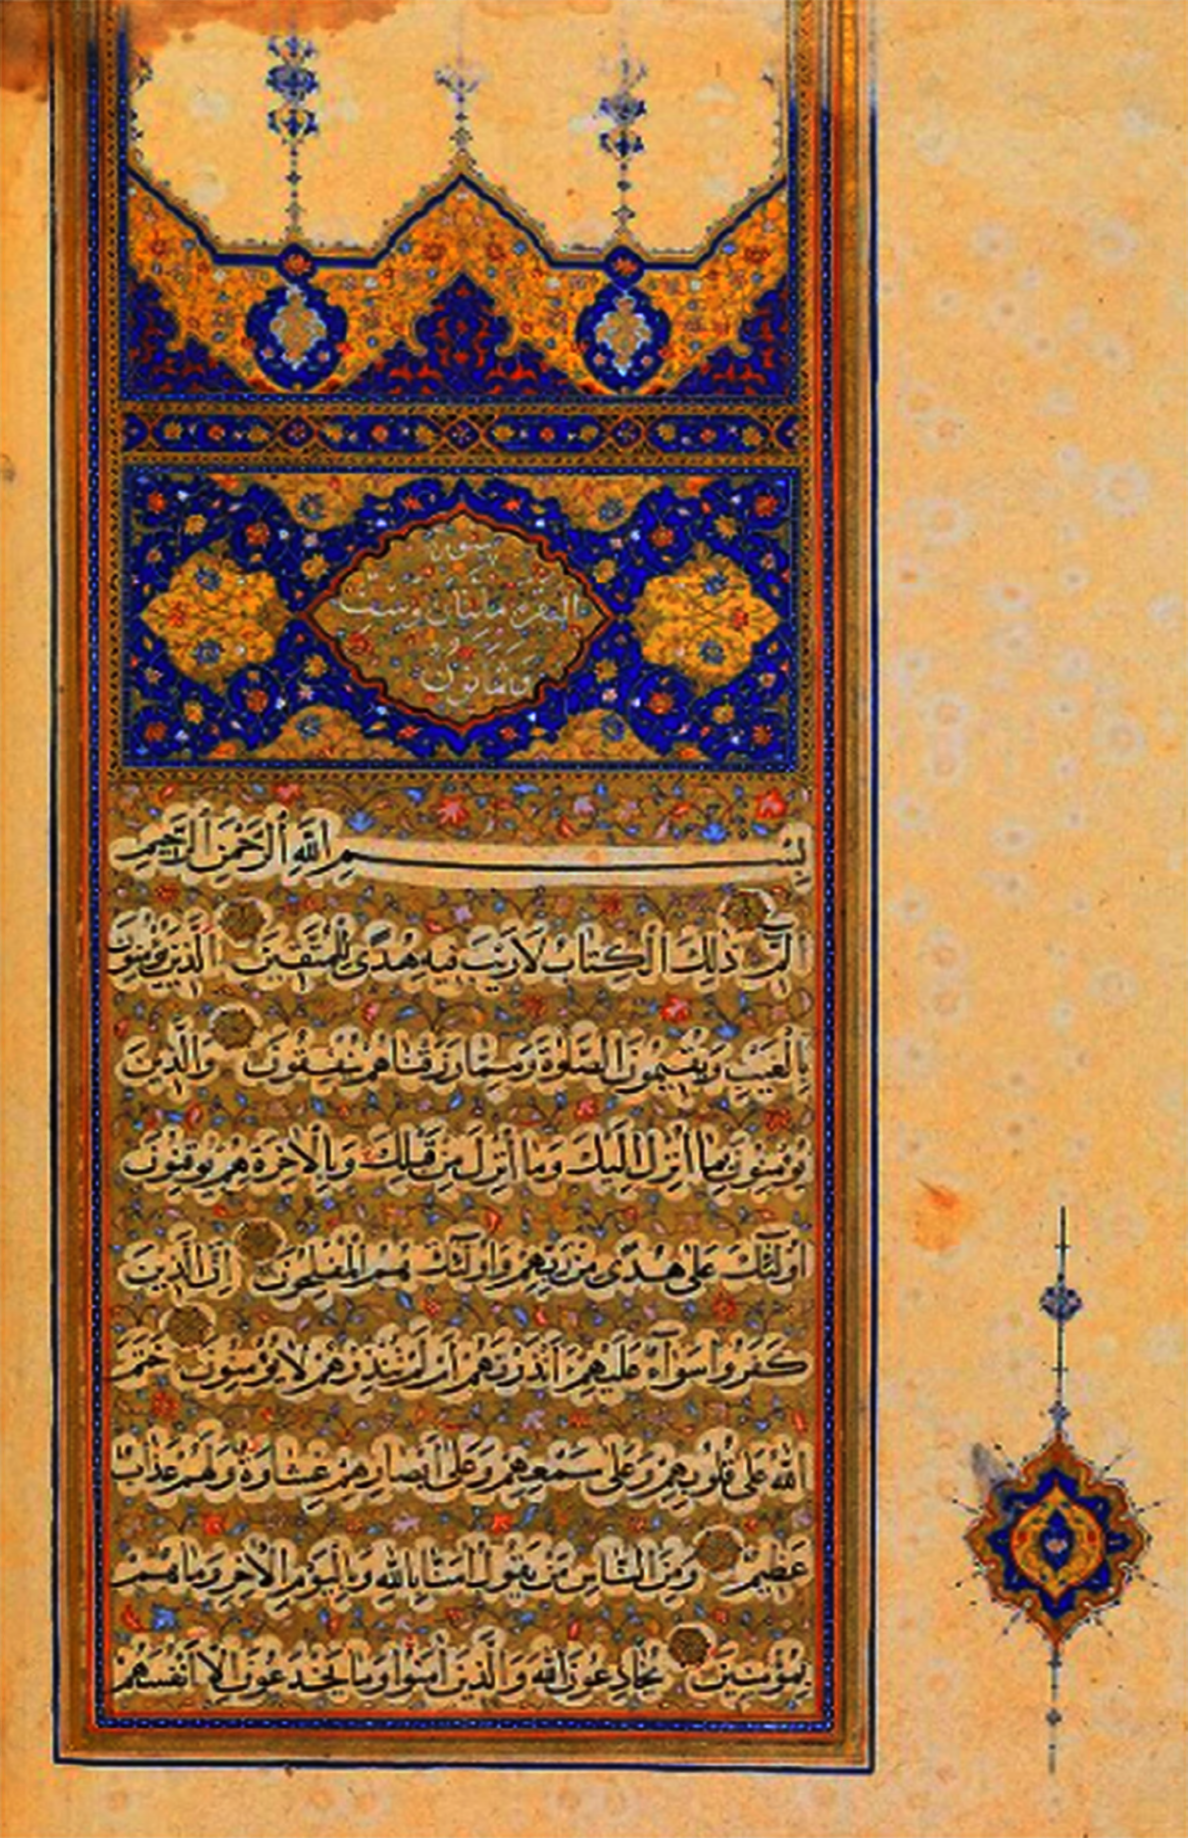 سورة
البقرة مائتان وست
وثمانون
بِسْمِ اللَّهِ الرَّحْمٰنِ الرَّحِيمِ
الٓمٓ ذٰلِكَ الْكِتابُ لَا رَيْبَ فِيهِ هُدًى لِلْمُتَّقِينَ الَّذِينَ يُؤْمِنُونَ
بِالْغَيْبِ وَيُقِيمُونَ الصَّلٰوةَ وَمِمَّا رَزَقْناهُمْ يُنْفِقُونَ وَالَّذِينَ
يُؤْمِنُونَ بِما أُنْزِلَ إِلَيْكَ وَما أُنْزِلَ مِنْ قَبْلِكَ وَبِالْآخِرَةِ هُمْ يُوقِنُونَ
اُولٰٓئِكَ عَلٰى هُدًى مِنْ رَبِّهِمْ وَاُولٰٓئِكَ هُمُ الْمُفْلِحُونَ اِنَّ الَّذِينَ
كَفَرُوا سَوَآءٌ عَلَيْهِمْ ءَاَنْذَرْتَهُمْ اَمْ لَمْ تُنْذِرْهُمْ لَا يُؤْمِنُونَ خَتَمَ
اللَّهُ عَلٰى قُلُوبِهِمْ وَعَلٰى سَمْعِهِمْ وَعَلٰى اَبْصارِهِمْ غِشاوَةٌ وَلَهُمْ عَذابٌ
عَظِيمٌ وَمِنَ النَّاسِ مَنْ يَقُولُ اٰمَنَّا بِاللَّهِ وَبِالْيَوْمِ الْاٰخِرِ وَما هُمْ
بِمُؤْمِنِينَ يُخادِعُونَ اللَّهَ وَالَّذِينَ اٰمَنُوا وَما يَخْدَعُونَ اِلَّا اَنْفُسَهُمْ